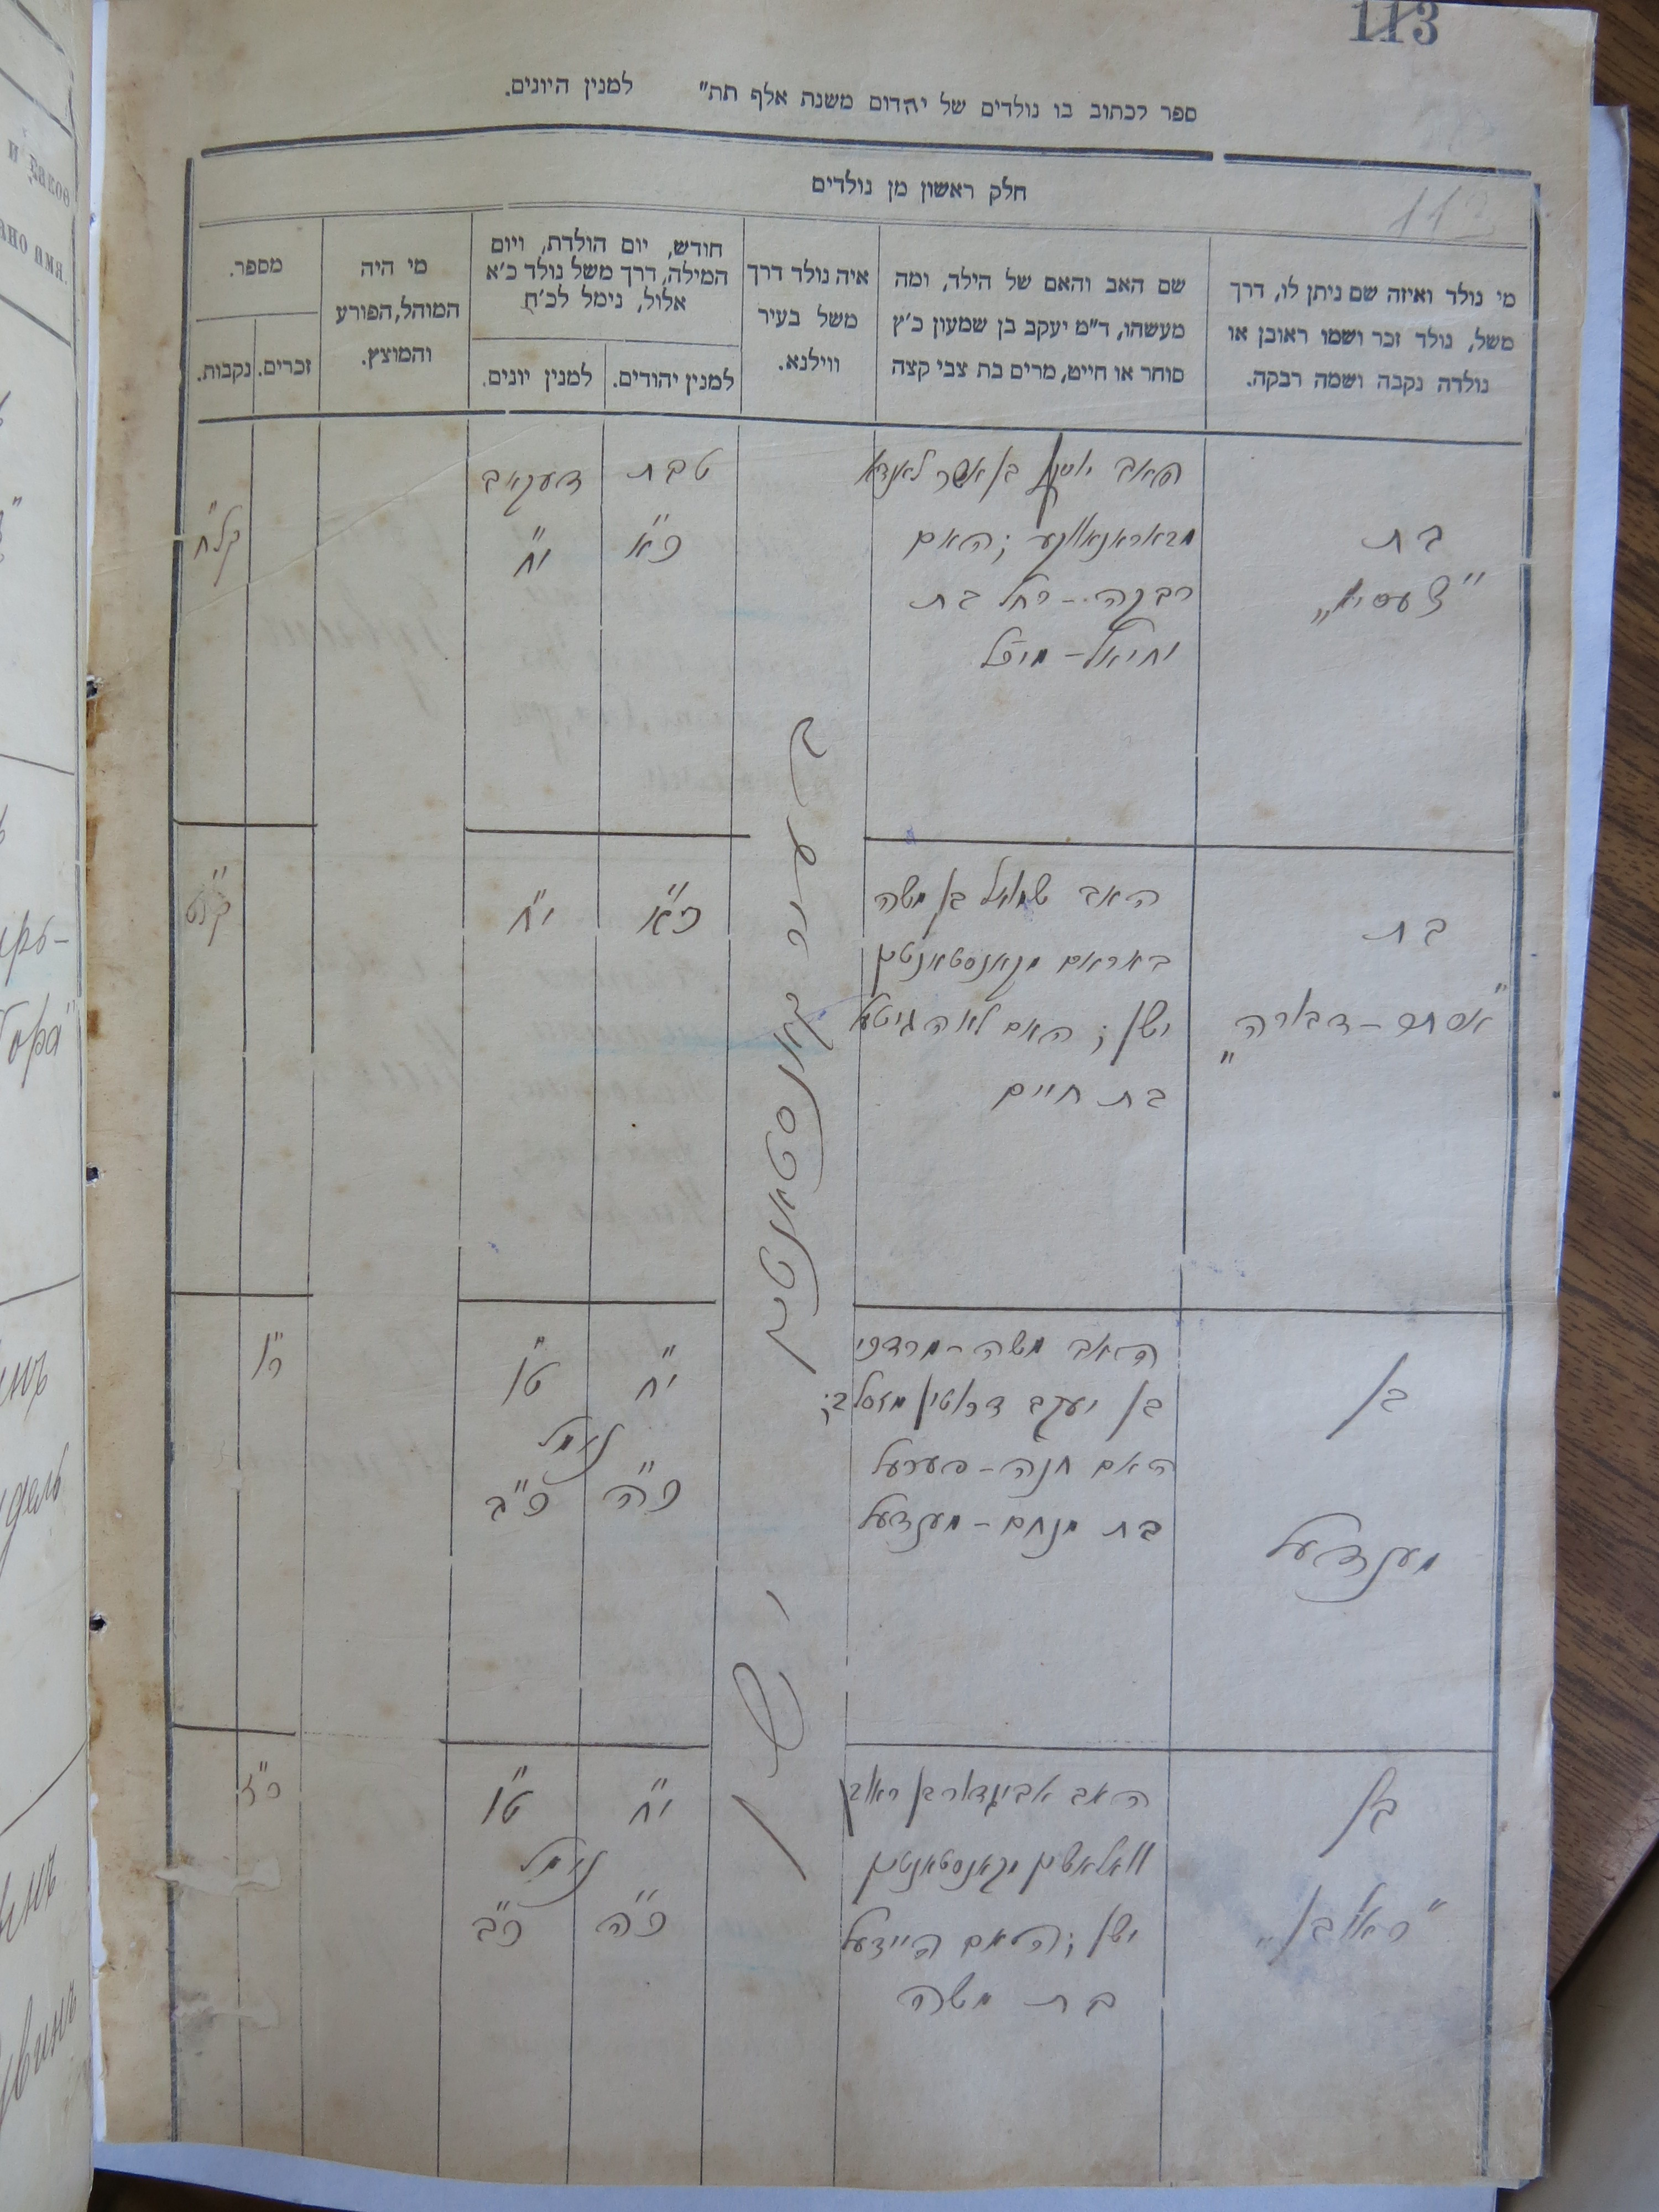 113
ספר לכתוב בו נולדים של יהדום משנת אלף תת״ למנין היונים.
112
חלק ראשון מן נולדים
מי נולד ואיזה שם ניתן לו, דרך
משל, נולד זכר ושמו ראובן או
נולדה נקבה ושמה רבקה.
שם האב והאם של הילד, ומה
מעשהו, ד״מ יעקב בן שמעון כ׳ץ
סוחר או חייט, מרים בת צבי קצה
איה נולד דרך
משל בעיר
ווילנא.
חודש, יום הולדת, ויום
המילה, דרך משל נולד כ׳א
אלול, נימל לכ׳ח
למנין יהודים.
למנין יונים.
מי היה
המוהל, הפורע
והמוצץ.
מספר.
זכרים.
נקבות.
בת
האב בן אשר
האם
רבקה - רחל בת
יחיאל - מיכל
טבת
כ״א
דעקאב
י״ח
קל״ח
בעיר קאנסטאנטין
ישן
בת
אסתר - דבורה
האב שמואל בן משה
מקאנסטאנטין
ישן ; האם לאה גיטל
בת חיים
כ״א
י״ח
קל״ט
בן
מענדעל
האב משה - מרדכי
בן יעקב
האם חנה - פערעל
בת מנחם - מענדעל
י״ח
ט״ו
נימל
כ״ה
כ״ב
ר״ו
בן
״ראובן״
האב אביגדור בן
מקאנסטאנטין
ישן ; האם היידעל
בת משה
י״ח
ט״ו
נימל
כ״ה
כ״ב
ר״ז